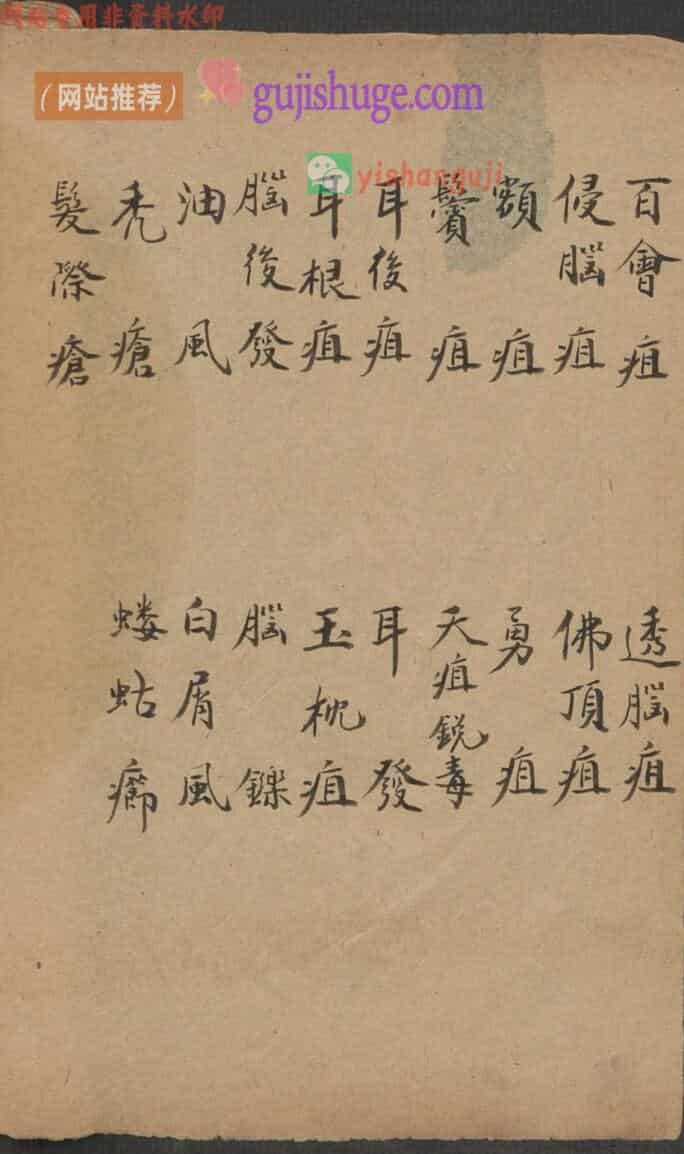 网站专用非资料水印
（网站推荐）
gujishuge.com
yishanguji
百會疽 透腦疽
侵腦疽 佛頂疽
額疽 勇疽
鬢疽 天疽銳毒
耳後疽 耳發
耳根疽 玉枕疽
腦後發 腦鑠
油風 白屑風
禿瘡 螻蛄癤
髮際瘡